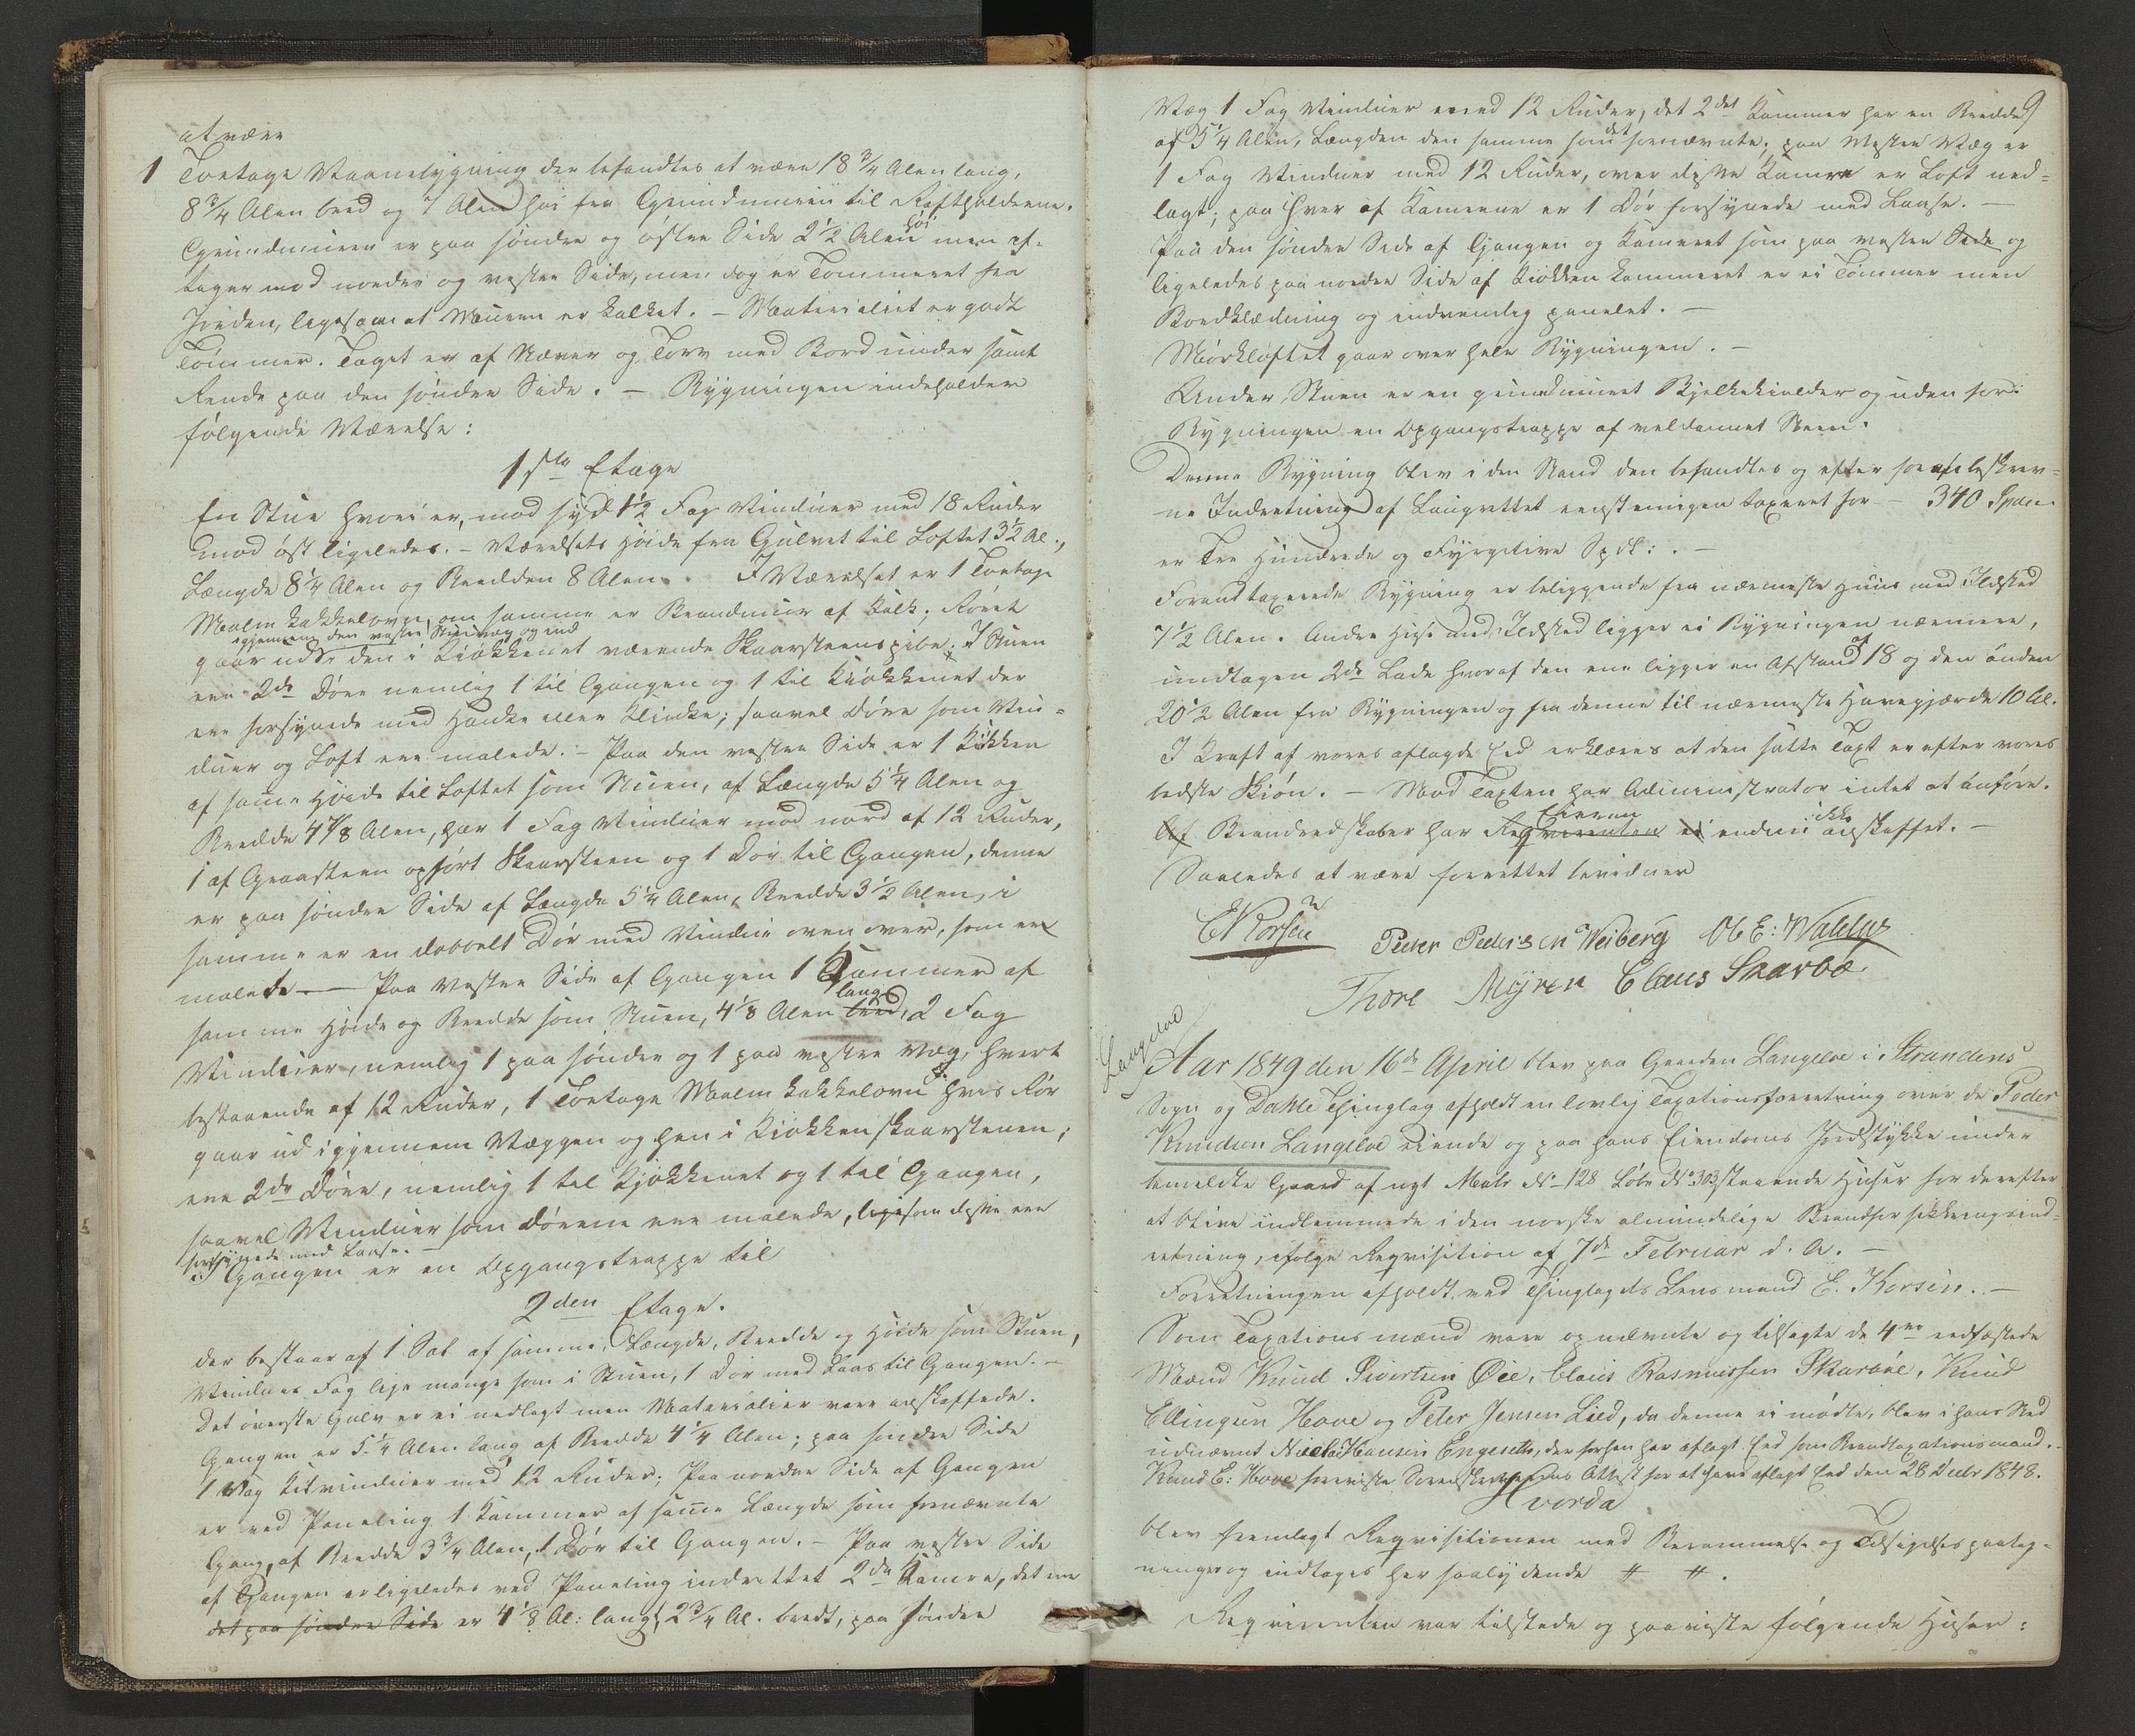 at være
1 Toetage Vaanebygning der befandtes at være 18 3/4 Alen lang,
8 3/4 Alen bred og 7 Alen høi fra Grundmuren til Raftholderne.
Grundmuren er paa søndre og østre Side 2 1/2 Alen høi men af-
tager mod nordre og vestre Side, men dog er Tømmeret fra
Jorden, ligesom at Muren er kalket. – Materialiet er godt
Tømmer. Taget er af Næver og Torv med Bord under samt
Rende paa den søndre Side. – Bygningen indeholder
følgende Værelse:
1ste Etage
En Stue hvori er, mod syd 1 1/2 Fag Vinduer med 18 Ruder
mod øst ligeledes. – Værelsets Høide fra Gulvet til Loftet 3 1/2 Al.,
Længde 8 1/4 Alen og Bredden 8 Alen. I Værelset er 1 Toetage
Malm Kakkelovn, om samme er Brandmuur af Kalk; Røret
igjennem den vestre Stuevæg og ind
gaar ud i den i Kiøkkenet værende Skaarsteenspibe. I Stuen
ere 2de Døre nemlig 1 til Gangen og 1 til Kiøkkenet der
ere forsynede med Hanke eller Klinke; saavel Døre som Vin-
duer og Loft ere malede. – Paa den vestre Side er 1 Kiøkken
af samme Høide til Loftet som Stuen, af Længde 5 1/4 Alen og
Bredde 4 7/8 Alen, har 1 Fag Vinduer mod nord af 12 Ruder,
1 af Graasteen opført Skaarsteen og 1 Dør til Gangen, denne
er paa søndre Side af Længde 5 1/4 Alen, Bredde 3 1/2 Alen, i
samme er en dobbelt Dør med Vindue oven over, som er
malede. – Paa vestre Side af Gangen 1 Kammer af
samme Høide og Bredde som Stuen, 4 1/8 Alen bred, lang 2 Fag
Vinduer, nemlig 1 paa søndre og 1 paa vestre Væg, hvert
bestaaende af 12 Ruder, 1 Toetage Malm Kakkelovn hvis Rør
gaar ud igjennem Væggen og hen i Kiøkkenskaarstenen;
ere 2de Døre, nemlig 1 til Kjøkkenet og 1 til Gangen,
saavel Vinduer som Dørene ere malede, ligesom disse ere
forsynede med Laase. –
I Gangen er en Opgangstrappe til
2den Etage.
der bestaar af 1 Sal af samme Længde, Bredde og Høide som Stuen,
Vinduer Fag lige mange som i Stuen, 1 Dør med Laas til Gangen. –
Det øverste Gulv er ei nedlagt men Materialier vare anskaffede.
Gangen er 5 1/4 Alen lang af Bredde 4 1/4 Alen; paa søndre Side
1 Fag Vinduer med 12 Ruder; Paa nordre Side af Gangen
er ved Paneling 1 Kammer af samme Længde som fornævnte
Gang, af Bredde 3 3/4 Alen, 1 Dør til Gangen. – Paa vestre Side
af Gangen er ligeledes ved Paneling indrettet 2de Kamre, det ene
det paa søndre Side er 4 1/8 Al: langt, 2 3/4 Al. bredt, paa søndre
9
Væg 1 Fag Vinduer med 12 Ruder, det 2det Kammer har en Bredde
af 5 1/4 Alen, Længden den samme som det fornævnte; paa vestre Væg er
1 Fag Vinduer med 12 Ruder, over disse Kamre er Loft ned-
lagt; paa hver af Kamrene er 1 Dør forsynede med Laase. –
Paa den søndre Side af Gangen og Kameret som paa vestre Side og
ligeledes paa nordre Side af Kiøkken kammeret er ei Tømmer men
Bordklædning og indvendig panelet. –
Mørkloftet gaar over hele Bygningen. –
Under Stuen er en grundmuret Bjelkekielder og uden for
Bygningen en Opgangstrappe af veldannet Steen.
Denne Bygning blev i den Stand den befandtes og efter foran beskrev-
ne Indretning af Laugrettet eenstemmigen taxeret for – 340 Spd
er Tre Hundrede og Fyrgetive Spdl: . –
Foranstaxerede Bygning er beliggende fra nærmeste Huus med Ildsted
7 1/2 Alen. Andre Huse med Ildsted ligger ei Bygningen nærmere,
undtagen 2de Lade hvoraf den ene ligger en Afstand af 18 og den anden
20 1/2 Alen fra Bygningen og fra denne til nærmeste Havegjærde 10 Al.
I Kraft af vores aflagde Eed erklæres at den satte Taxt er efter vores
bedste Skiøn. – Mod Taxten har Administrator intet at anføre.
Af Brandredskaber har Reqvirenten Eieren ei endnu ikke anskaffet. –
Saaledes at være forrettet bevidner
E Korsen Peder Pedersen Weiberg Ol E: Waldus
Thore Myren Claus Skarbø
Langeloe
Aar 1849 den 16de April blev paa Gaarden Langeloe i Strandens
Sogn og Dahle Thinglag afholdt en lovlig Taxationsforretning over de Peder
Knudsen Langeloe eiende og paa hans Eiendoms Jordstykke under
bemeldte Gaard af nyt Matr No 128 Løbe No 303 staaende Huser for derefter
at blive indlemmede i den norske almindelige Brandforsikkringsind-
retning, ifølge Reqvisition af 7de Februar d. A. –
Forretningen afholdt ved Thinglagets Lensmand E. Korsen. –
Som Taxationsmænd vare opnævnte og tilsagte de 4re eedfæstede
Mænd Knud Sivertsen Øie, Claus Rasmussen Skarbøe, Knud
Ellingsen Hove og Peter Jensen Lied, da denne ei mødte, blev i hans Sted
udnævnt Nicolai Hansen Engeseth, der forhen har aflagt Eed som Brandtaxationsmand.
Knud E: Hove foreviste Sorenskriverens Attest for at have aflagt Eed den 28 Decbr 1848.
Hvorda
blev fremlagt Reqvisitionen med Berammelse og Tilsigelses paateg-
ninger og indtages her saalydende # #.
Reqvirenten var tilstede og paaviste følgende Huser: